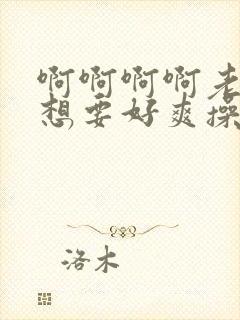 啊啊啊啊老
想要好爽操
洛木